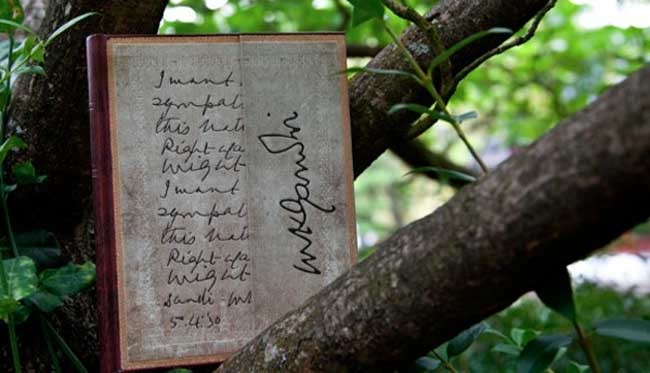 I want
sympat
this batt
Right aga
Might
I want
sympat
this batt
Right aga
Might
Dandi MK
5.4.30
MKGandhi